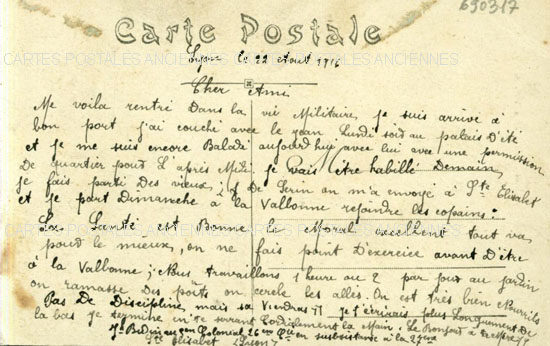 690317
Carte Postale
CARTES POSTALES ANCIENNES CARTES POSTALES ANCIENNES
Lyon le 22 Aout 1916
Cher Ami
Me voila rentré Dans la vie Militaire, je suis arrivé à
bon port j'ai couché avec le Lundi soir au palais D'été
et je me suis encore Baladé aujourd'huy avec lui avec une permission
De quartier pour L'après Midi je Vais être habillé Demain,
je fais parti Des vieux, De Serin on m'a envoyé à Ste Elisabet
et je part Dimanche à la Valbonne rejoindre les copains :
La Santé est Bonne le Moral excellent tout va
pour le mieux, on ne fais point D'exercice avant D'être
à la Valbonne ; Nous travaillons 1 heure ou 2 par jour au jardin
on ramasse Des on cercle les allés. On est très bien Nourris
Pas De Discipline, mais sa Viendras je t'écrirais plus Longuement de
la bas je termine en te serrant Cordialement la Main. Le Bonjour à
Colonial 2 en subsistance à la
Ste Elisabet (Lyon)